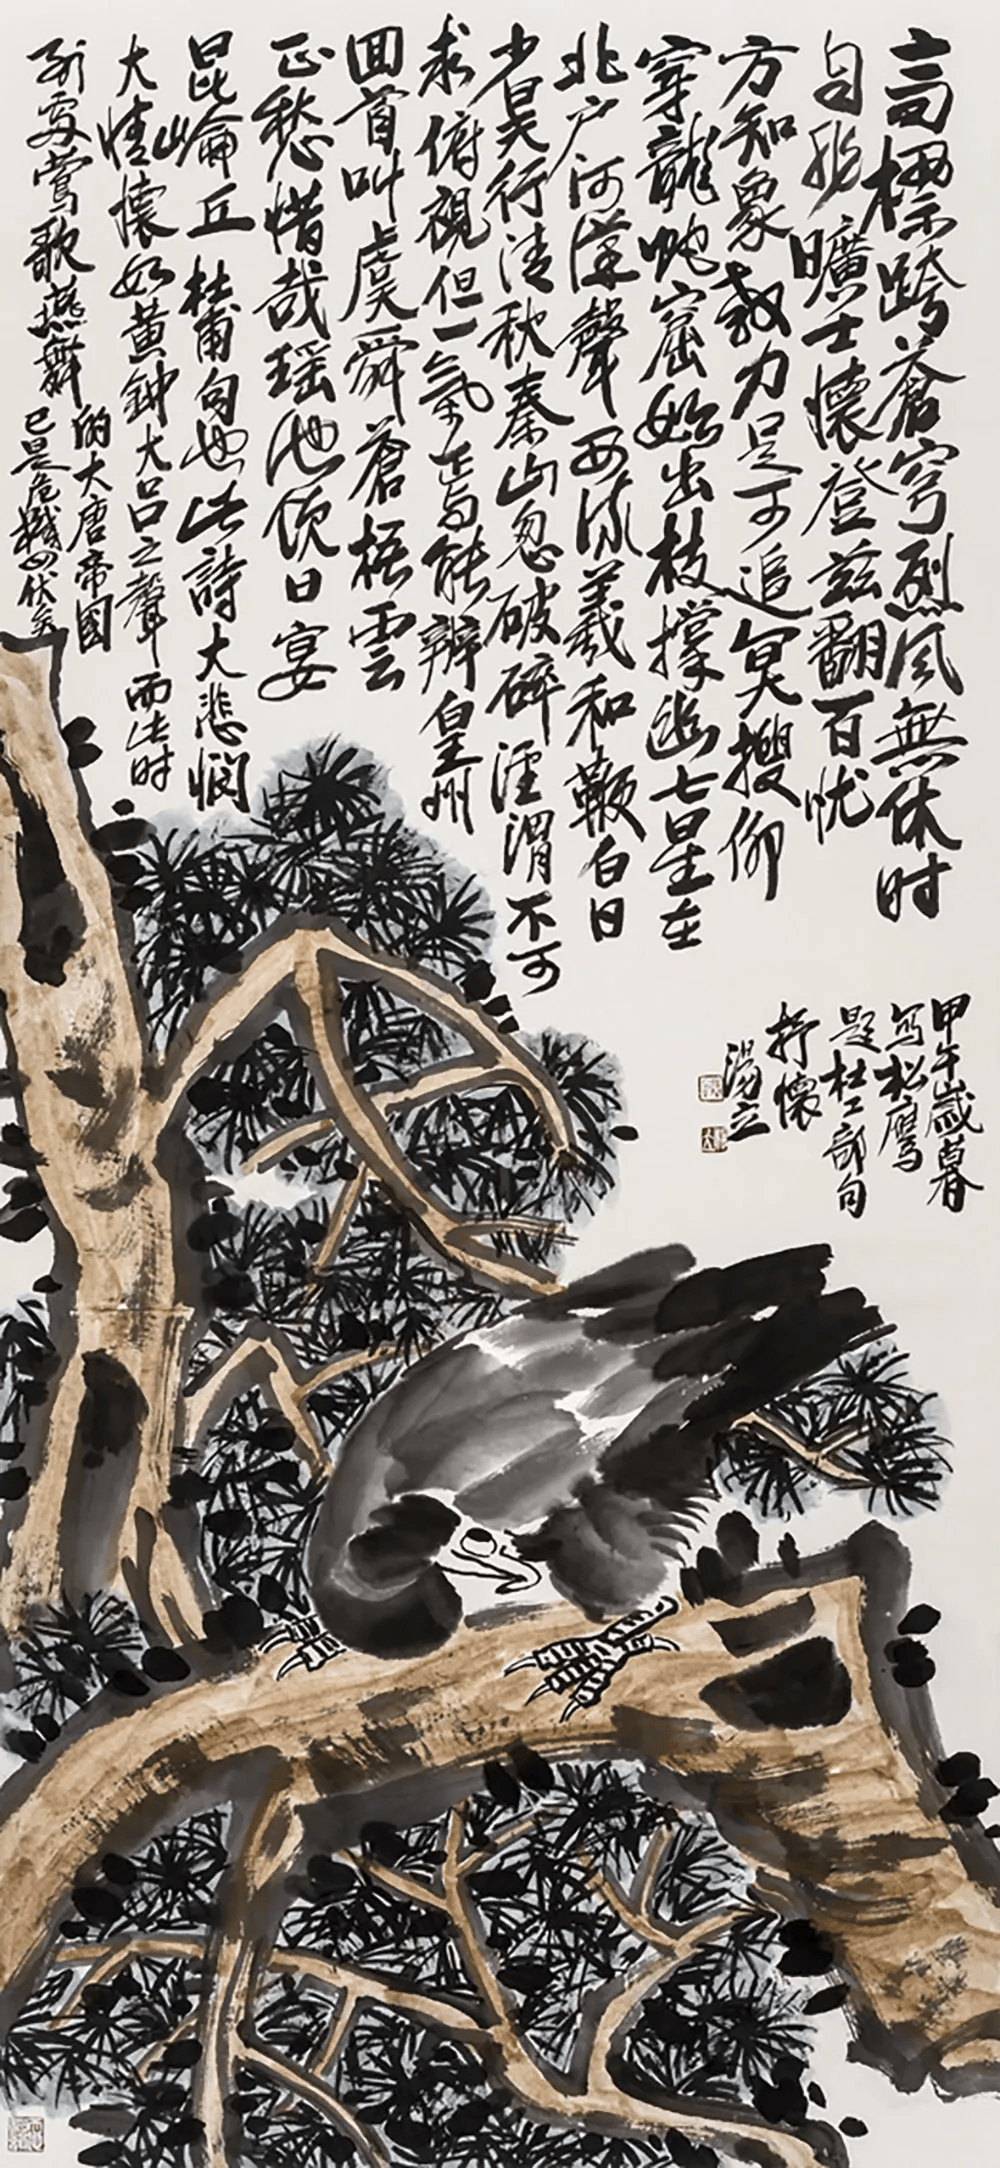 高標跨蒼穹烈風無休时
自非曠士懷登兹翻百忧
方知象教力足可追冥搜仰
穿龍蛇窟始出枝撑幽七星在
北户河漢聲西流羲和鞭白日
少昊行清秋秦山忽破碎涇渭不可
求俯視但一氣焉能辨皇州
回首叫虞舜蒼梧雲
正愁惜哉瑶池饮日宴
昆崙丘杜甫句也此詩大悲悯
大情懷如黄鈡大吕之聲而此时
到處鶯歌燕舞
的大唐帝國
已是危機四伏矣
甲午歲暮
写松鹰
題杜工部句
抒懷
湯立